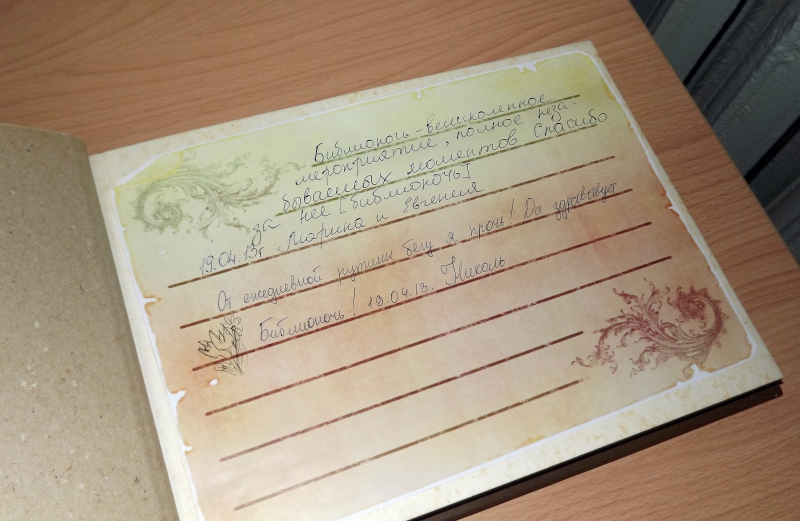 Библионочь - великолепное
мероприятие, полное неза-
бываемых моментов Спасибо
за неё [библионочь]
19.04.13г Марина и Евгения
От ежедневной рутины бегу я прочь! Да здравствует
Библионочь! 19.04.13. Николь